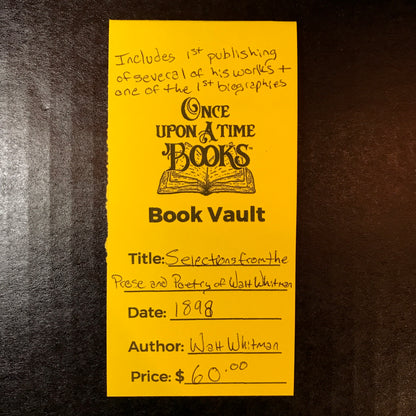 Includes 1st publishing
of several of his works +
one of the 1st biographies
ONCE
UPON A TIME
BOOKS™
Book Vault
Title: Selections from the
Prose and Poetry of Walt Whitman
Date: 1898
Author: Walt Whitman
Price: $ 60.00